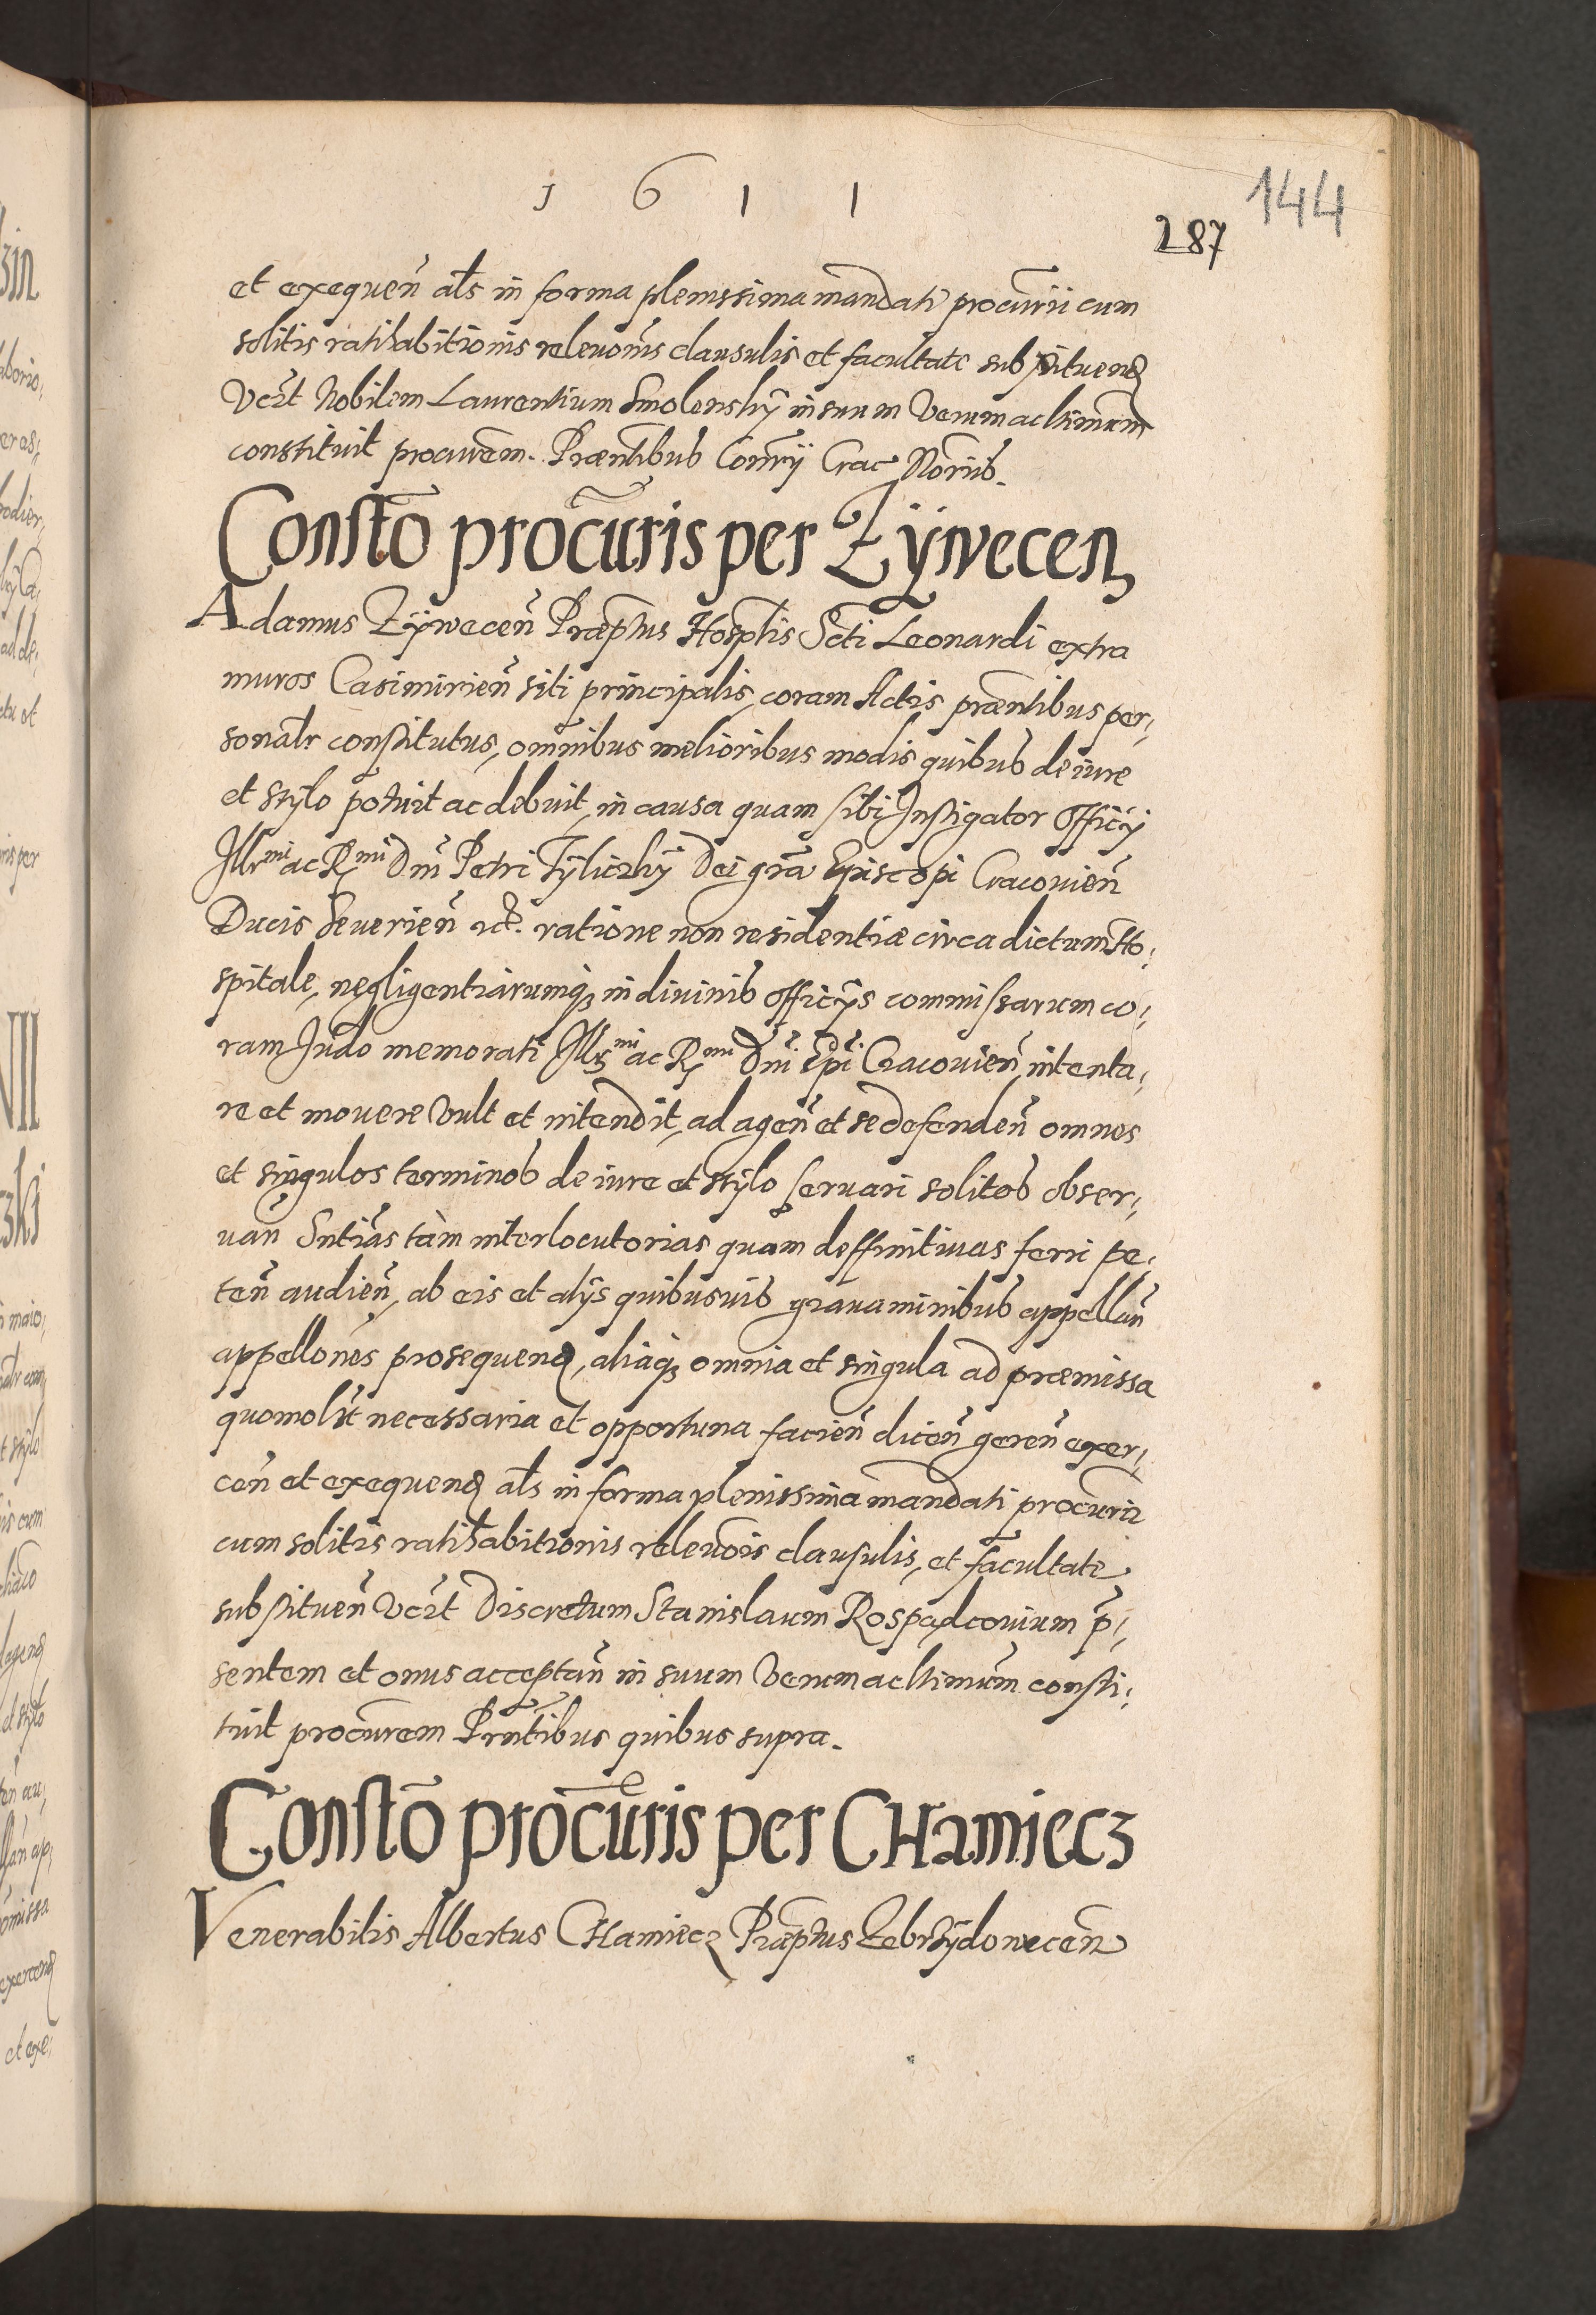 1 6 1 1
144
287
et exequeñ als in forma plenissima mandati procurii cum
solitis ratihabitionis releuonis clausulis et facultate substituend
Vczt Nobilem Laurentium Smolensky in suum verum ac ltimum
constituit procurem. Praentibus Comrij Crac Noriis.
Constō procuris per Zÿwecen
Adamus Zÿwecen Praeptus Hosptlis Scti Leonardi extra
muros Casimirieñ siti principalis, coram Actis praentibus per,
sonalr constitutus, omnibus melioribus modis quibus de iure
et stylo potuit ac debuit, in causa quam sibi Instigator Officij
Illrmi ac Rmi Dni Petri Tÿliczky Dei gra Episcopi Cracouieñ
Ducis Seuerieñ etc. ratione non residentiæ circa dictum Ho,
spitale, negligentiarumq3 in diuinis officijs commissarum co,
ram Judo memorati Illrmi ac Rmi Dni Epi Cracouieñ intenta,
re et mouere vult et intendit, ad ageñ et se defendeñ omnes
et singulos terminos de iure et stylo seruari solitos obser,
uañ Sntias tam interlocutorias quam deffinitiuas ferri pe,
teñ audieñ, ab eis et alijs quibusuis grauaminibus appellañ
appellones prosequend, aliaq3 omnia et singula ad præmissa
quomolit necessaria et opportuna facieñ diceñ gereñ exer,
ceñ et exequend als in forma plenissima mandati procurii
cum solitis ratihabitionis releuois clausulis, et facultate
substitueñ Vczt Discretum Stanislaum Rospadcouium p,
sentem et onus acceptañ in suum verum ac ltimum consti,
tuit procurem Prntibus quibus supra.
Constō procuris per CHamiecz
Venerabilis Albertus CHamiecz Præptus Zebrzÿdoweceñ